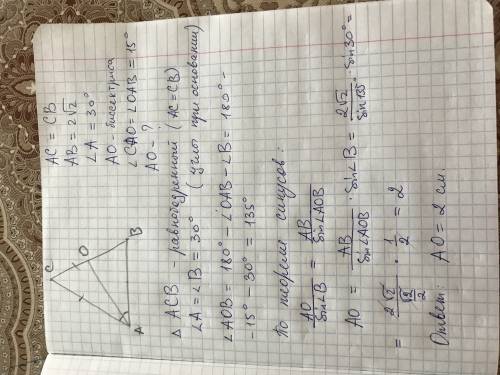 C
O
A
B
AC = CB
AB = 2√2
∠A = 30°
AO - биссектриса
∠CAO = ∠OAB = 15°
AO - ?
△ ACB - равнобедренный (AC = CB)
∠A = ∠B = 30° (углы при основании)
∠AOB = 180° - ∠OAB - ∠B = 180° -
- 15° - 30° = 135°
По теореме синусов:
AO/sin∠B = AB/sin∠AOB
AO = AB/sin∠AOB · sin∠B = 2√2/sin135° · sin30° =
= 2√2/(√2/2) · 1/2 = 2
Ответ: AO = 2 см.